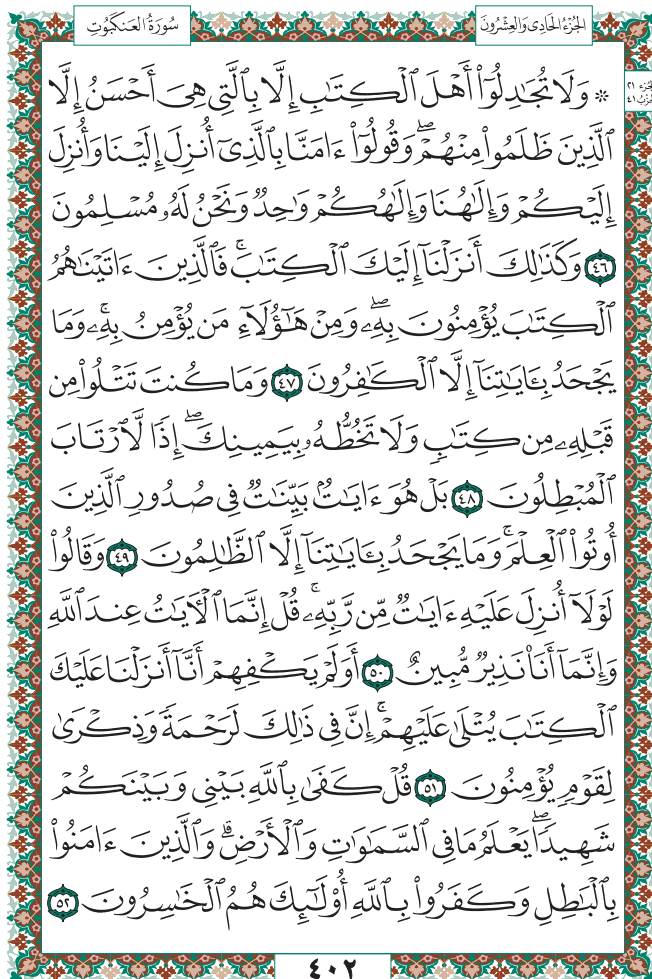 سُورَةُ العَنكَبُوتِ
الجُزْءُ الحَادِى وَالعِشْرُونَ
الجزء ٢١
الحزب ٤١
۞ وَلَا تُجَٰدِلُوٓاْ أَهۡلَ ٱلۡكِتَٰبِ إِلَّا بِٱلَّتِى هِىَ أَحۡسَنُ إِلَّا
ٱلَّذِينَ ظَلَمُواْ مِنۡهُمۡۖ وَقُولُوٓاْ ءَامَنَّا بِٱلَّذِىٓ أُنزِلَ إِلَيۡنَا وَأُنزِلَ
إِلَيۡكُمۡ وَإِلَٰهُنَا وَإِلَٰهُكُمۡ وَٰحِدٞ وَنَحۡنُ لَهُۥ مُسۡلِمُونَ
٤٦ وَكَذَٰلِكَ أَنزَلۡنَآ إِلَيۡكَ ٱلۡكِتَٰبَۚ فَٱلَّذِينَ ءَاتَيۡنَٰهُمُ
ٱلۡكِتَٰبَ يُؤۡمِنُونَ بِهِۦۖ وَمِنۡ هَٰٓؤُلَآءِ مَن يُؤۡمِنُ بِهِۦۚ وَمَا
يَجۡحَدُ بِـَٔايَٰتِنَآ إِلَّا ٱلۡكَٰفِرُونَ ٤٧ وَمَا كُنتَ تَتۡلُواْ مِن
قَبۡلِهِۦ مِن كِتَٰبٖ وَلَا تَخُطُّهُۥ بِيَمِينِكَۖ إِذٗا لَّٱرۡتَابَ
ٱلۡمُبۡطِلُونَ ٤٨ بَلۡ هُوَ ءَايَٰتُۢ بَيِّنَٰتٞ فِى صُدُورِ ٱلَّذِينَ
أُوتُواْ ٱلۡعِلۡمَۚ وَمَا يَجۡحَدُ بِـَٔايَٰتِنَآ إِلَّا ٱلظَّٰلِمُونَ ٤٩ وَقَالُواْ
لَوۡلَآ أُنزِلَ عَلَيۡهِ ءَايَٰتٞ مِّن رَّبِّهِۦۚ قُلۡ إِنَّمَا ٱلۡأٓيَٰتُ عِندَ ٱللَّهِ
وَإِنَّمَآ أَنَا۠ نَذِيرٞ مُّبِينٌ ٥٠ أَوَلَمۡ يَكۡفِهِمۡ أَنَّآ أَنزَلۡنَا عَلَيۡكَ
ٱلۡكِتَٰبَ يُتۡلَىٰ عَلَيۡهِمۡۚ إِنَّ فِى ذَٰلِكَ لَرَحۡمَةٗ وَذِكۡرَىٰ
لِقَوۡمٖ يُؤۡمِنُونَ ٥١ قُلۡ كَفَىٰ بِٱللَّهِ بَيۡنِى وَبَيۡنَكُمۡ
شَهِيدٗاۖ يَعۡلَمُ مَا فِى ٱلسَّمَٰوَٰتِ وَٱلۡأَرۡضِۗ وَٱلَّذِينَ ءَامَنُواْ
بِٱلۡبَٰطِلِ وَكَفَرُواْ بِٱللَّهِ أُوْلَٰٓئِكَ هُمُ ٱلۡخَٰسِرُونَ ٥٢
٤٠٢